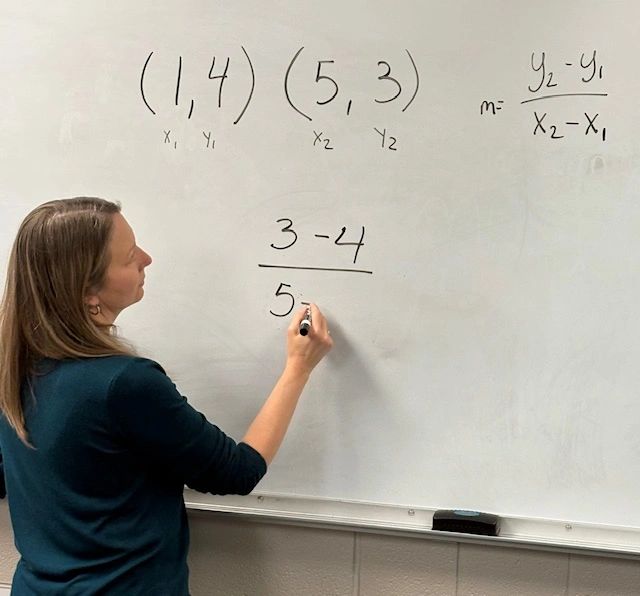 (1, 4) (5, 3)
x₁ y₁ x₂ y₂
m= y₂-y₁
x₂-x₁
3-4
5-